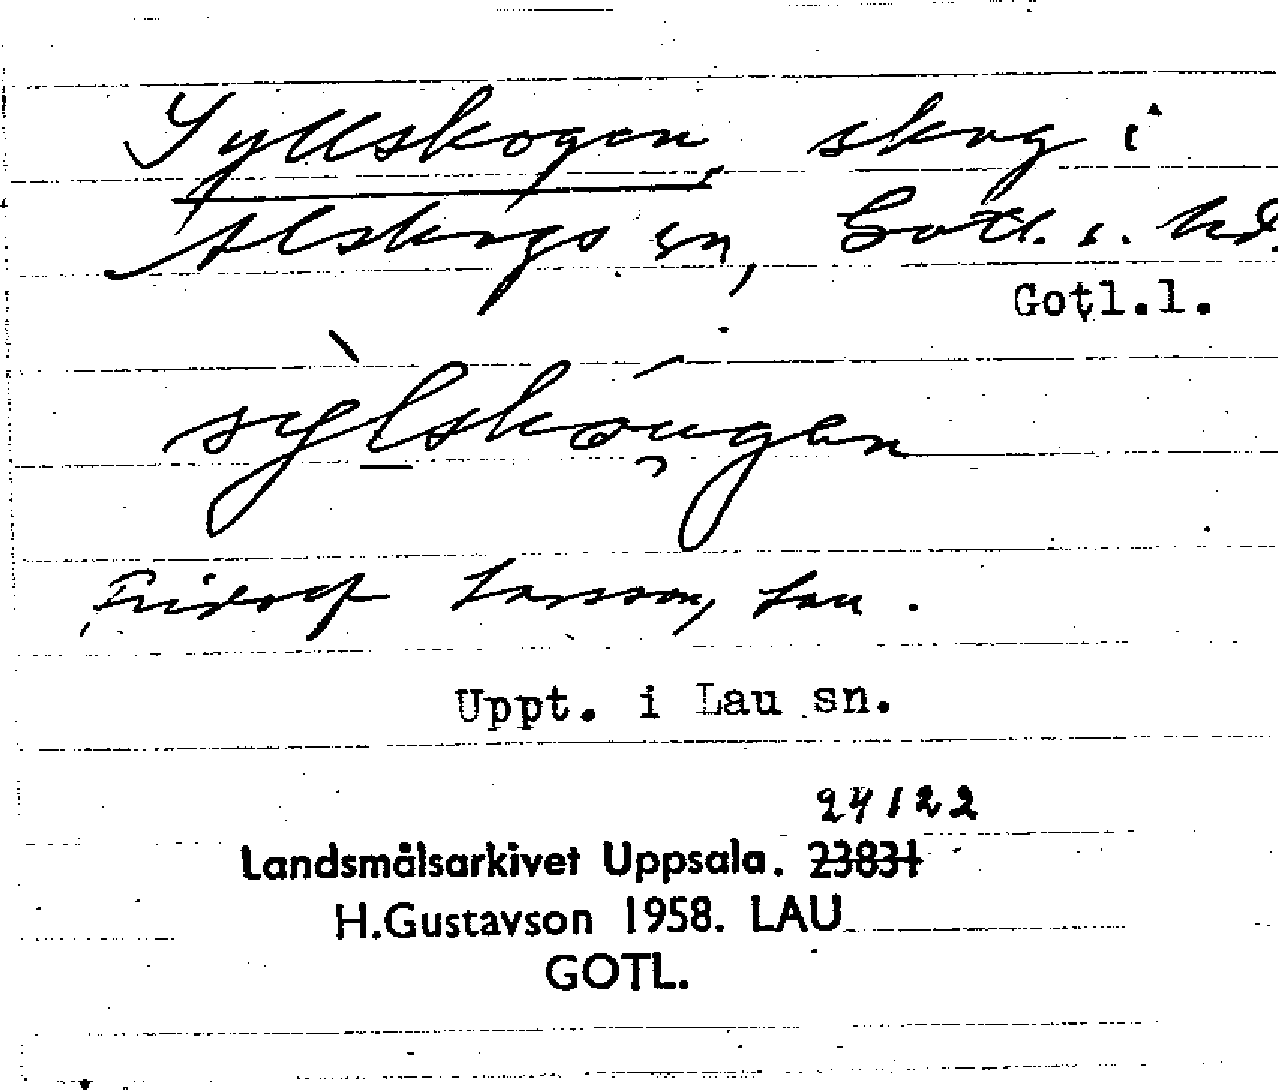 Syllskogen, skog i
Alskogs sn, Gotl. s. hd.
Gotl.l.
sỳlskóugen
Fridolf Larsson, Lau.
Uppt. i Lau sn.
24122
Landsmålsarkivet Uppsala. 23831
H.Gustavson 1958. LAU
GOTL.